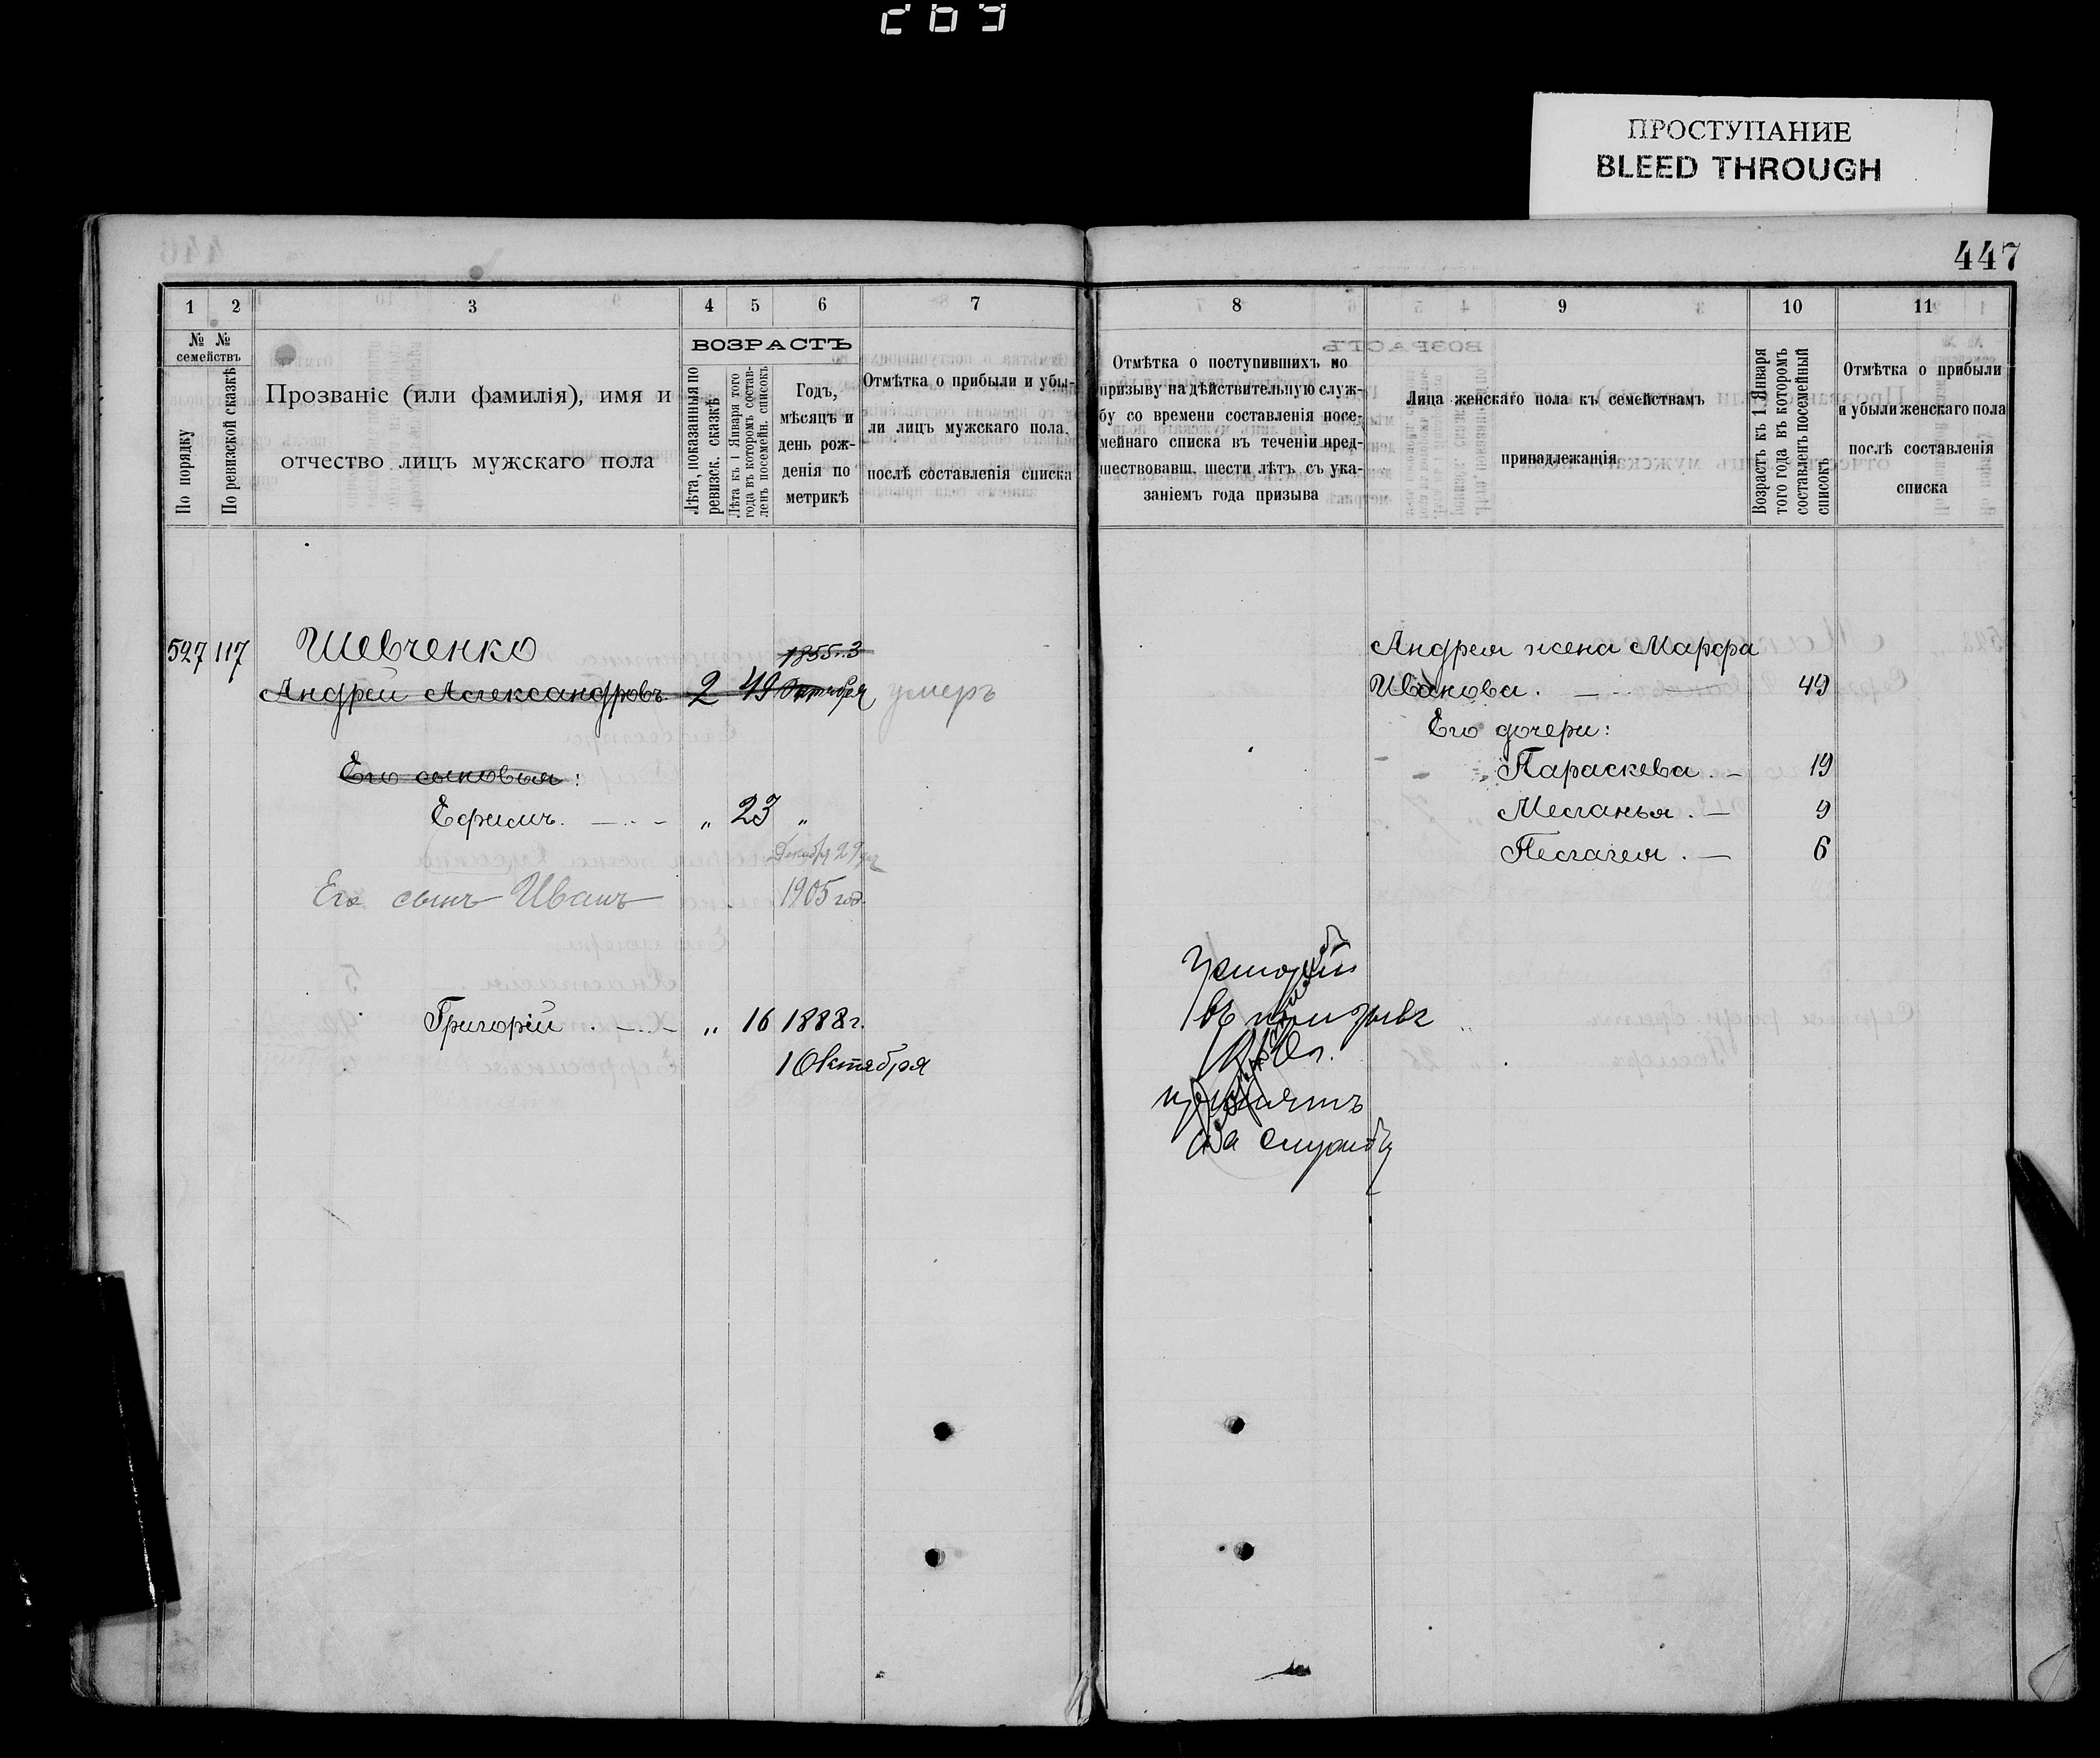 269
ПРОСТУПАНИЕ
BLEED THROUGH
447
1 2 3 4 5 6 7
№ № семействъ
По порядку
По ревизской сказкѣ
Прозваніе (или фамилія), имя и
отчество лицъ мужскаго пола
ВОЗРАСТЪ
Лѣта, показанныя по
ревизск. сказкѣ
Лѣта къ 1 Января того
года въ которомъ состав-
ленъ посемейн. списокъ
Годъ,
мѣсяцъ и
день рож-
денія по
метрикѣ
Отмѣтка о прибыли и убы-
ли лицъ мужскаго пола,
послѣ составленія списка
527 117 Шевченко 1855 г. 3
Андрей Александровъ 2 49 Октября умеръ
Его сыновья:
Ефимъ. „ 23 „
Декабря 29 дня
Его сынъ Иванъ 1905 год.
Григорій . „ 16 1888 г.
1 Октября
8 9 10 11
Отмѣтка о поступившихъ по
призыву на дѣйствительную служ-
бу со времени составленія посе-
мейнаго списка въ теченіи пред-
шествовавш. шести лѣтъ съ ука-
заніемъ года призыва
Лица женскаго пола къ семействамъ
принадлежанія
Возрастъ къ 1 Января
того года въ которомъ
составленъ посемейный
списокъ
Отмѣтка о прибыли
и убыли женскаго пола
послѣ составленія
списка
Андрея жена Марфа
Иванова. 49
Его дочери:
Параскева. 19
Меланья. 9
Пелагея. 6
Григорій
въ призывъ
принятъ
на службу